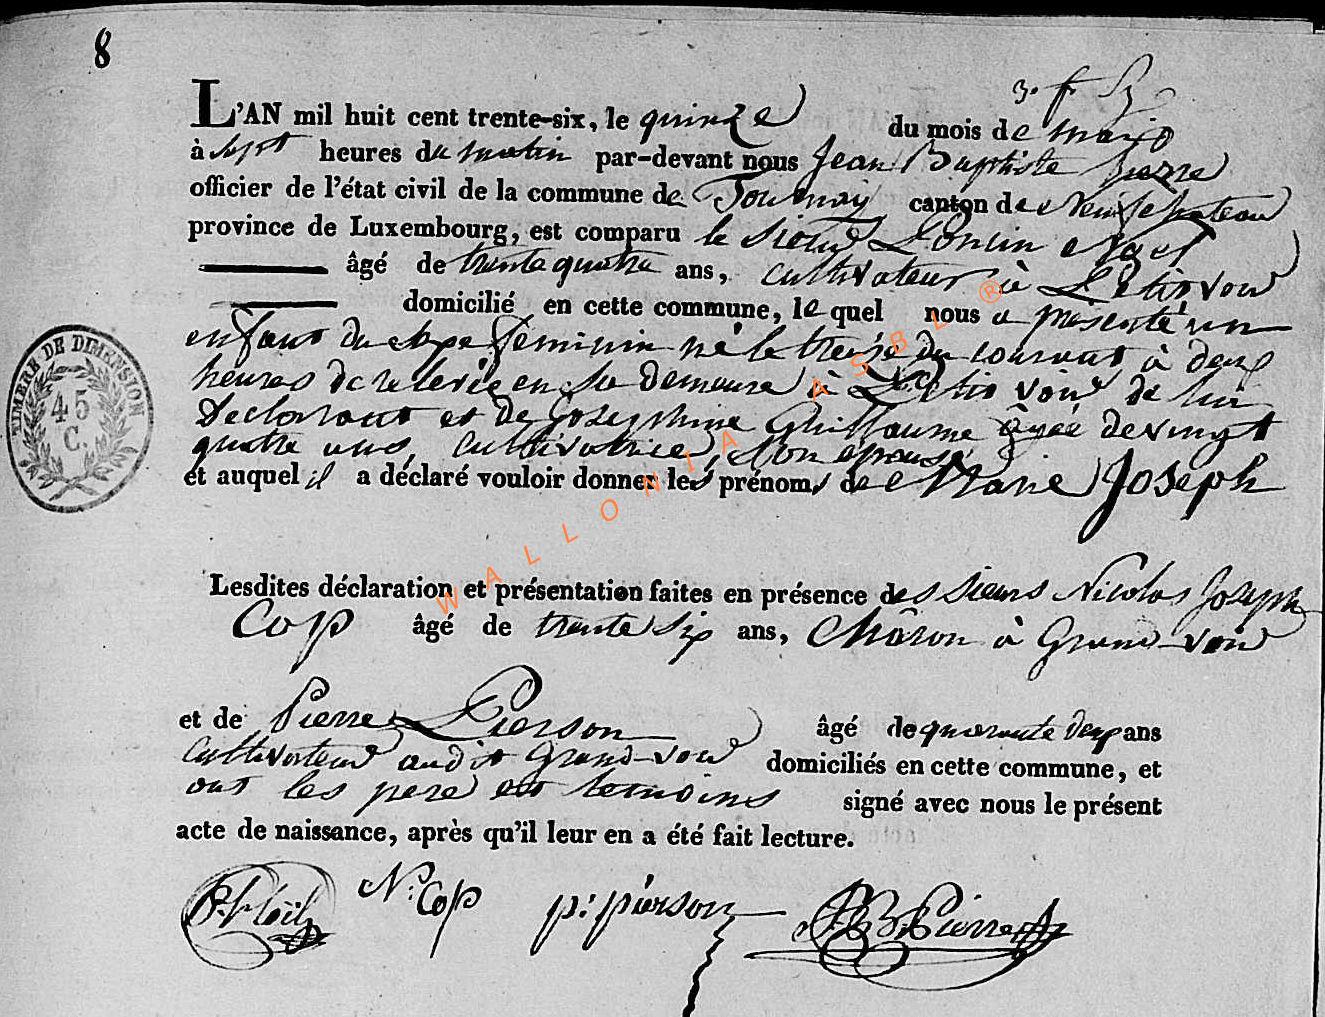 8
L'AN mil huit cent trente-six, le quinze du mois de mars
à sept heures du matin par-devant nous Jean Baptiste Pierre
officier de l'état civil de la commune de Tournay canton de Neufchateau
province de Luxembourg, est comparu le sieur
âgé de trente quatre ans, cultivateur à
domicilié en cette commune, lequel nous a présenté un
enfant du sexe feminin né le treize du courant à deux
heures de relevée en sa demeure à de lui
Declarant et de Josephine Guillaume âgée de vingt
quatre ans, cultivatrice, son épouse
et auquel il a déclaré vouloir donner les prénoms de Marie Joseph
Lesdites déclaration et présentation faites en présence des sieurs Nicolas Joseph
Cop âgé de trente six ans, Charon à Grand-voir
et de Pierre Pierson âgé de quarante deux ans
cultivateur audit Grand-voir domiciliés en cette commune, et
ont les pere et temoins signé avec nous le présent
acte de naissance, après qu'il leur en a été fait lecture.
N. Cop p: pierson JB Pierre
TIMBRE DE DIMENSION
45
C.
WALLONIA ASBL ®